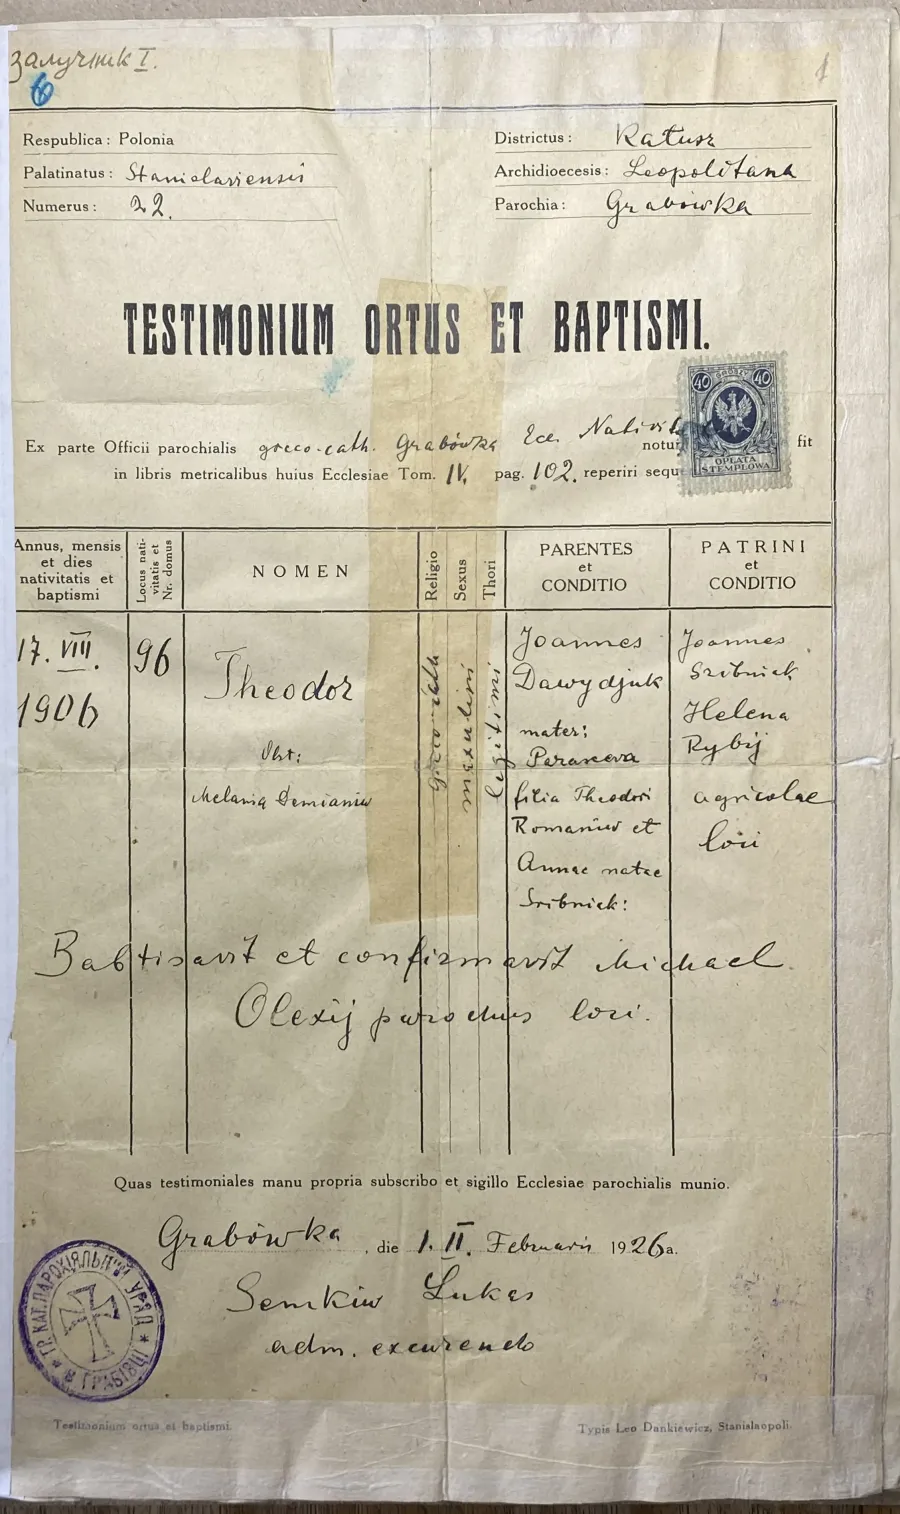 Залучник I.
6
1
Respublica: Polonia
Palatinatus: Stanislaviensis
Numerus: 22.
Districtus: Kałusz
Archidioecesis: Leopolitana
Parochia: Grabówka
TESTIMONIUM ORTUS ET BAPTISMI.
40 GROSZY 40
OPŁATA
STEMPLOWA
Ex parte Officii parochialis greco-cath. Grabówka Ecc. Nativit notu fit
in libris metricalibus huius Ecclesiae Tom. IV. pag. 102. reperiri sequ
Annus, mensis et dies nativitatis et baptismi
Locus nati-vitatis et Nr. domus
NOMEN
Religio
Sexus
Thori
PARENTES et CONDITIO
PATRINI et CONDITIO
17. VIII.
1906
96
Theodor
Obst:
Melania Demianiw
greco-cath
masculini
legitimi
Joannes
Dawydjuk
mater:
Parasceva
filia Theodori
Romaniw et
Annae natae
Sribniak:
Joannes
Sribniak
Helena
Rybij
agricolae
loci
Babtisavit et confirmavit Michael
Olexij parochus loci.
Quas testimoniales manu propria subscribo et sigillo Ecclesiae parochialis munio.
Grabówka, die 1. II. Februarii 1926 a.
Semkiw Lukas
adm. excurendo
ГР. КАТ. ПАРОХІЯЛЬНИЙ УРЯД
В ГРАБІВЦІ
Testimonium ortus et baptismi.
Typis Leo Dankiewicz, Stanislaopoli.